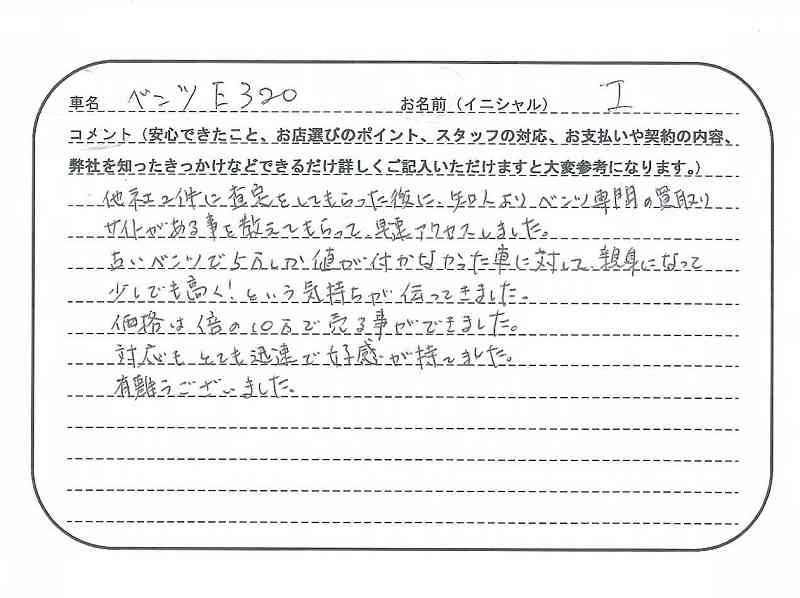 車名 ベンツE320 お名前（イニシャル） I
コメント（安心できたこと、お店選びのポイント、スタッフの対応、お支払いや契約の内容、
弊社を知ったきっかけなどできるだけ詳しくご記入いただけますと大変参考になります。）
他社2件に査定をしてもらった後に、知人よりベンツ専門の買取り
サイトがある事を教えてもらって、早速アクセスしました。
古いベンツで5万しか値が付かなかった車に対して、親身になって
少しでも高く！という気持ちが伝ってきました。
価格は倍の10万で売る事ができました。
対応もとても迅速で好感が持てました。
有難うございました。